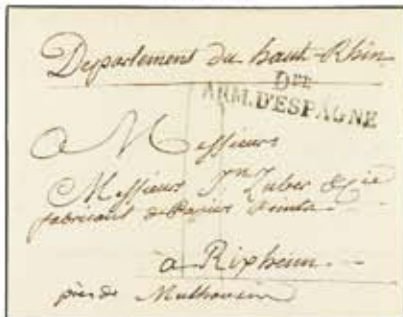 Departement du haut-Rhin
Dre
ARM. D'ESPAGNE
A Messieurs
Messieurs Jn Zuber & Cie
fabricants de Papiers Peints
a Rixheim
près de Mulhausen